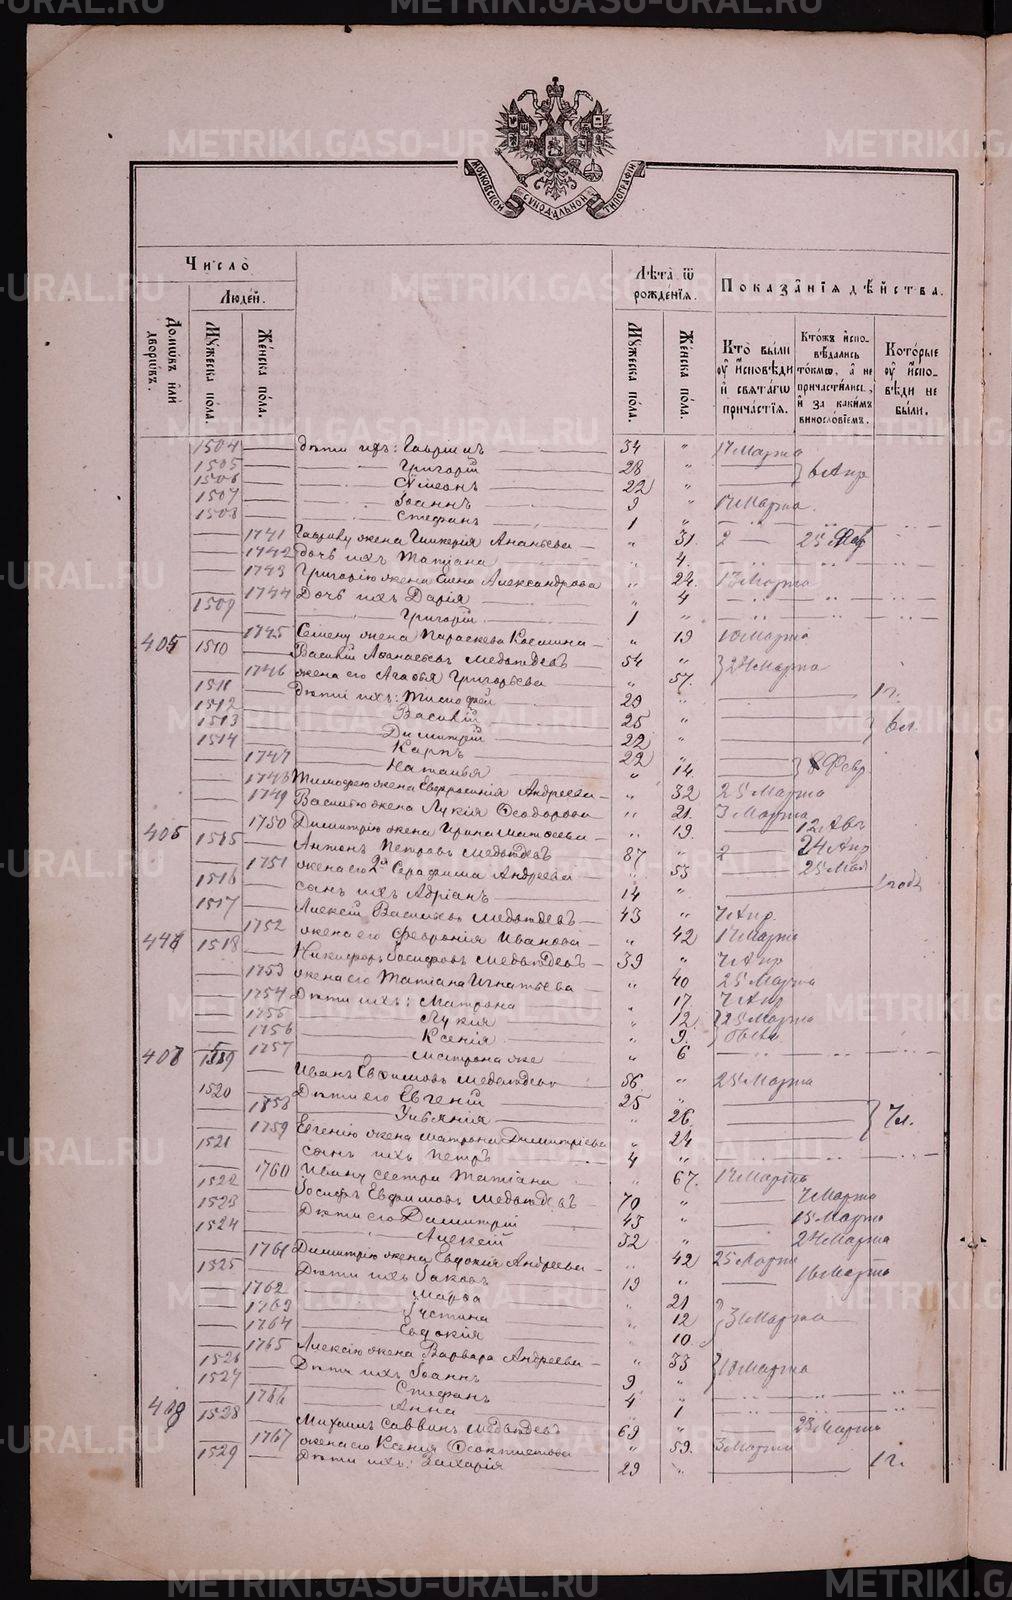 METRIKI.GASO-URAL.RU
МОСКОВСКОЙ СѴНОДАЛЬНОЙ ТИПОГРАФІИ
Число
Людей.
Домѡвъ или дворѡвъ.
Мꙋжеска пола.
Женска пола.
Лѣта ѿ рожденїѧ.
Мꙋжеска пола.
Женска пола.
Показанїѧ дѣйства.
Кто были ᲂу҆ исповѣди и свѧтагѡ причастїѧ.
Ктожъ исповѣдались токмѡ, а не причастились, и за какимъ винословїемъ.
Которые ᲂу҆ исповѣди не были.
1504 дѣти ихъ: Гавріилъ 34 " 17 Марта
1505 Григорій 28 "
1506 Симеонъ 22 " 6 Апр
1507 Іоаннъ 9 " 17 Марта.
1508 Стефанъ 1 "
1741 Гаврилу жена Гликерія Ананьева " 31. 2 — 25 Фев
1742 дочь ихъ Татіана " 4.
1743 Григорію жена Елена Александрова " 24. 17 Марта
1744 Дочь ихъ Дарія " 4
1509 Григорій 1 "
1745 Семену жена Параскева Космина " 19 10 Марта
405 1510 Василій Афанасьевъ Медвѣдевъ 54 " 24 Марта
1746 жена его Агафья Григорьева " 57.
1511 Дѣти ихъ: Тимофей 29 " 1 г.
1512 Василій 25 "
1513 Димитрій 22 " 6 л.
1514 Карпъ 22 "
1747 Наталья " 14. 8 Февр.
1748 Тимофею жена Евфросинія Андреева " 32 25 Марта
1749 Василію жена Лукія Ѳеодорова " 21. 3 Марта
1750 Димитрію жена Ирина Матѳеева " 19. 12 Авг
406 1515 Антонъ Петровъ Медвѣдевъ 87 " 2 — 24 Апр
1751 жена его 2я Серафима Андреева " 53 25 Мая
1516 сынъ ихъ Адріанъ 14 " 1 годъ
1517 Алексій Васильевъ Медвѣдевъ 43 " 7 Апр.
1752 жена его Февронія Иванова " 42 17 Марта
1518 Никифоръ Іосифовъ Медвѣдевъ 39 " 7 Апр
1753 жена его Татіана Игнатьева " 40 25 Марта
1754 Дѣти ихъ: Матрона " 17. 7 Апр
1755 Лукія " 12. 25 Марта
1756 Ксенія " 9.
1757 Матрона же " 6
407 1519 Иванъ Евфимовъ Медвѣдевъ 56 " 25 Марта
1520 Дѣти его Евгеній 25 "
1758 Уліянія " 26. 7 л.
1759 Евгенію жена Матрона Димитріева " 24
1521 сынъ ихъ Петръ 4 "
1760 Ивану сестра Татіана " 67. 17 Марта
1522 Іосифъ Евфимовъ Медвѣдевъ 70 " 7 Марта
1523 Дѣти его Димитрій 45 " 15 Марта
1524 Алексій 32 " 24 Марта
1761 Димитрію жена Евдокія Андреева " 42 25 Марта
1525 Дѣти ихъ Іаковъ 19 " 16 Марта
1762 Марѳа " 21
1763 Устина " 12 3 Марта
1764 Евдокія " 10.
1765 Алексію жена Варвара Андреева " 33 10 Марта
1526 Дѣти ихъ Іоаннъ 9 "
1527 Стефанъ 4 "
1766 Анна " 1
1528 Михаилъ Саввинъ Медвѣдевъ 69 " 23 Марта
1767 жена его Ксенія Ѳеоктистова " 59. 3 Марта
1529 Дѣти ихъ: Захарія 29 " 1 г.